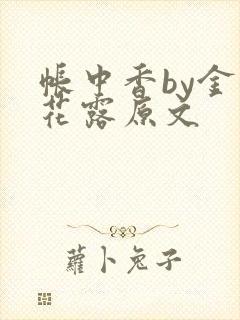 帐中香by金
花露原文
蘿卜兔子